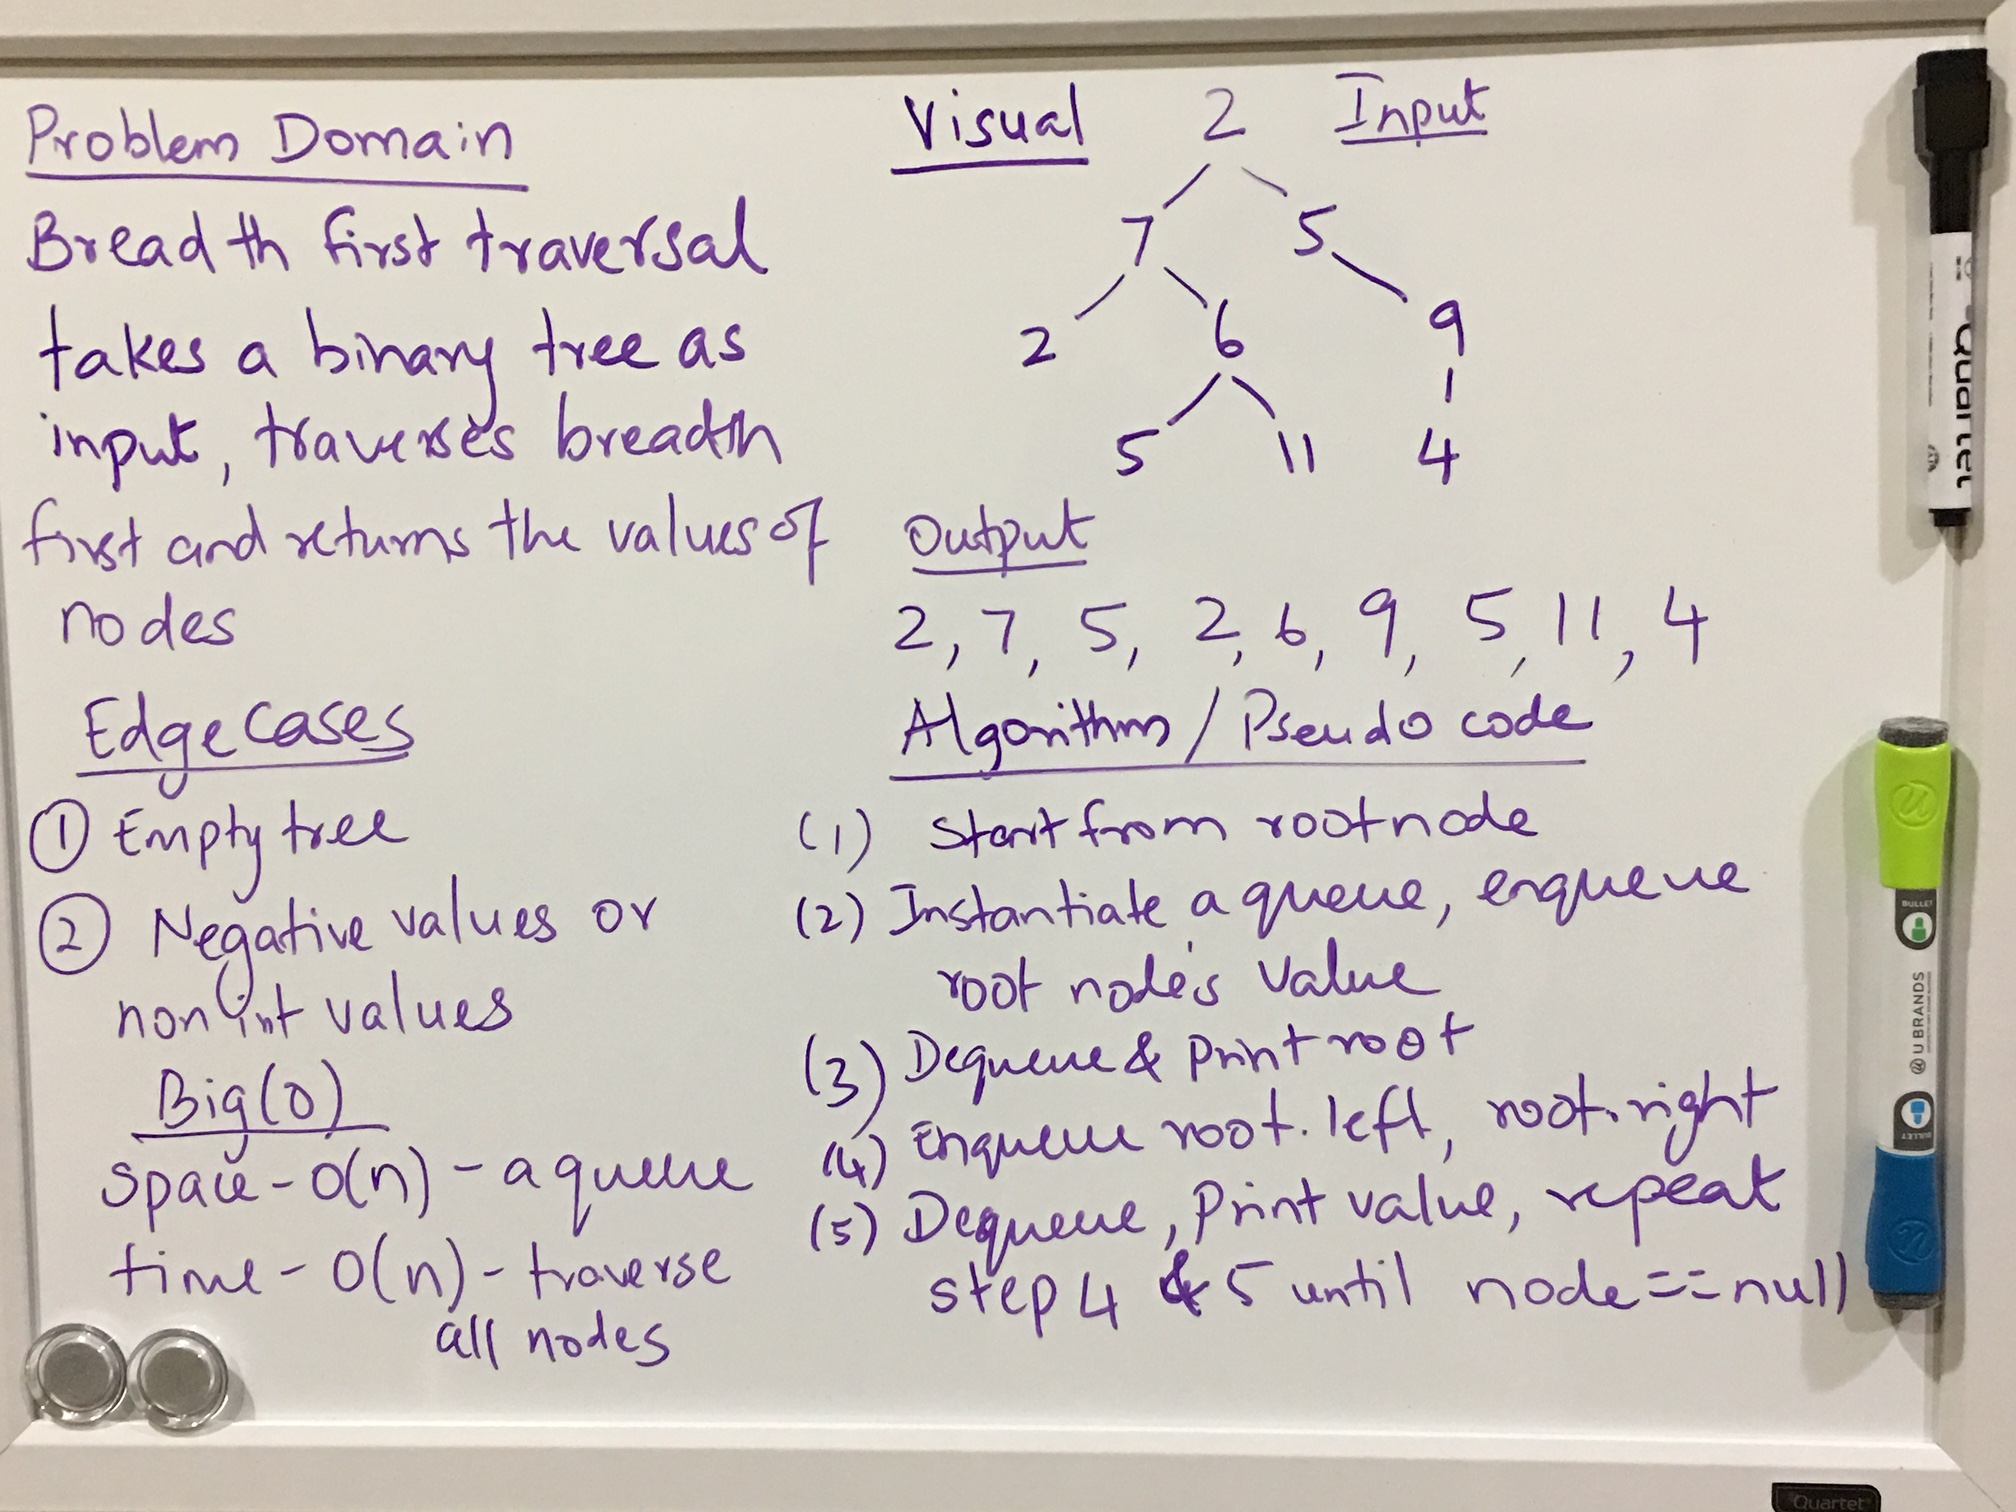 Problem Domain
Breadth first traversal
takes a binary tree as
input, traverses breadth
first and returns the values of
nodes
Edge Cases
① Empty tree
② Negative values or
non int values
Big(O)
space - O(n) - a queue
time - O(n) - traverse
all nodes
Visual 2 Input
7 5
2 6 9
5 11 4
Output
2, 7, 5, 2, 6, 9, 5, 11, 4
Algorithm / Pseudo code
(1) Start from root node
(2) Instantiate a queue, enqueue
root node's value
(3) Dequeue & Print root
(4) Enqueue root.left, root.right
(5) Dequeue, Print value, repeat
step 4 & 5 until node == null
Quartet
BULLET
@U BRANDS
BULLET
Quartet